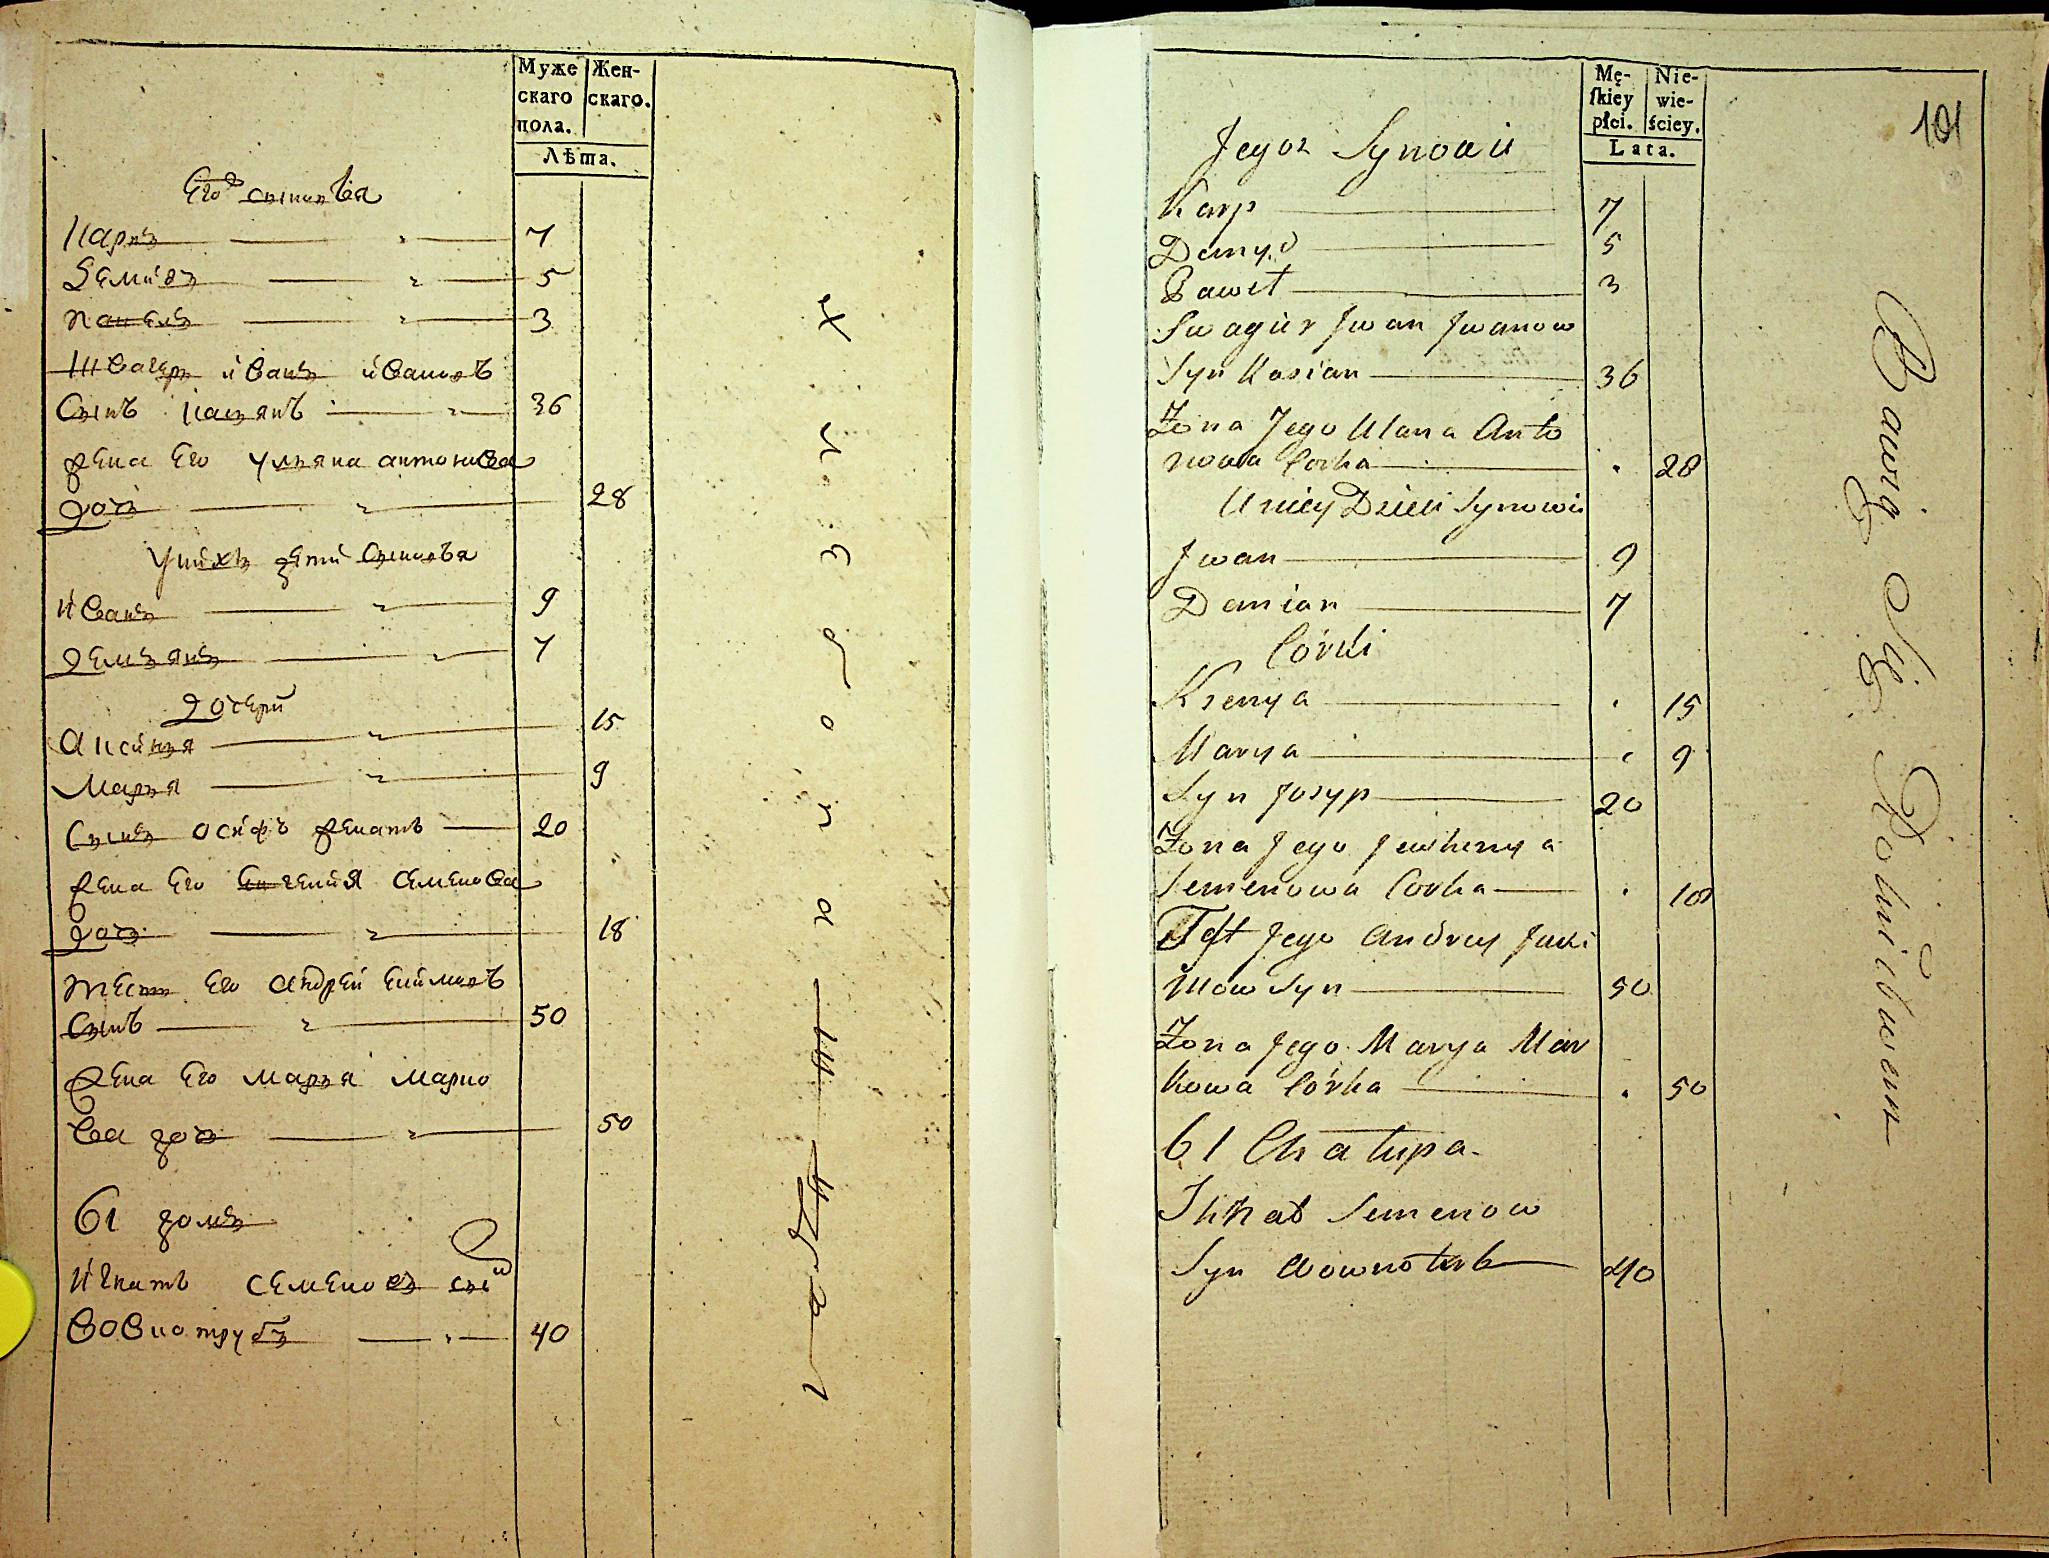 Муже
скаго
пола.
Жен-
скаго.
Лѣта.
Его сыновья
Карпъ 7
Демидъ 5
Павелъ 3
Швагеръ иванъ ивановъ
Сынъ касянъ 36
жена Его ульяна антонова
дочь 28
У нихъ дети Сыновья
иванъ 9
демьянъ 7
дочери
аксинья 15
Марья 9
Сынъ осифъ женатъ 20
жена Его Евгения семенова
дочь 18
тесть Его андрей
Сынъ 50
жена Его марья марко
ва дочь 50
61 домъ
игнатъ семеновъ сынъ
вовкотрубъ 40
Mę-
ſkiey
płci.
Nie-
wie-
ściey.
Lata.
101
Jego Synowie
Karp 7
Demyd 5
Paweł 3
Swagier Jwan Jwanow
Syn Kasian 36
Żona Jego Ulana Anto
nowa Corka 28
U niey Dzieci Synowie
Jwan 9
Damian 7
Córki
Ksenya 15
Marya 9
Syn Josyp 20
Żona Jego Jewhenya
Semenowa Corka 18
Teść Jego Andrey Jaki
mow Syn 50
Żona Jego Marya Mar
kowa Córka 50
61 Chałupa.
Ihnat Semenow
Syn Wowkotrub 40
Bawią Się Rolnictwem